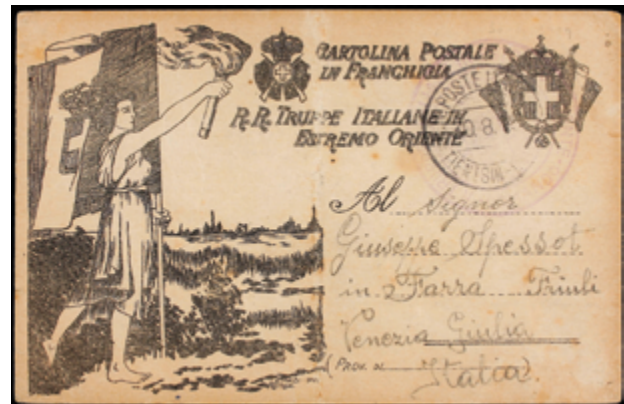 CARTOLINA POSTALE
IN FRANCHIGIA
R.R. TRUPPE ITALIANE IN
ESTREMO ORIENTE
POSTE
TIENTSIN
Al Signor
Giuseppe Spessot
in Farra Friuli
Venezia Giulia
(PROV. DI Italia).